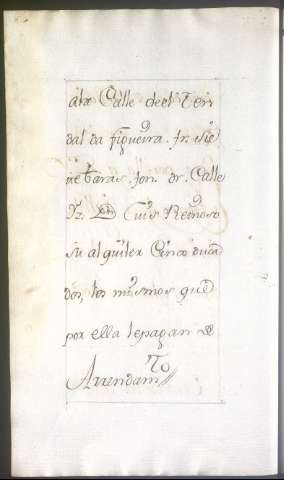 Calle de el Ten
dal da figueira. fr. Sie
te baras. fon. dr. Calle
Dz. Dn Luis Reinoso
su alquiler Cinco duca
dos, los mismos que
por ella le pagan de
Arrendamto